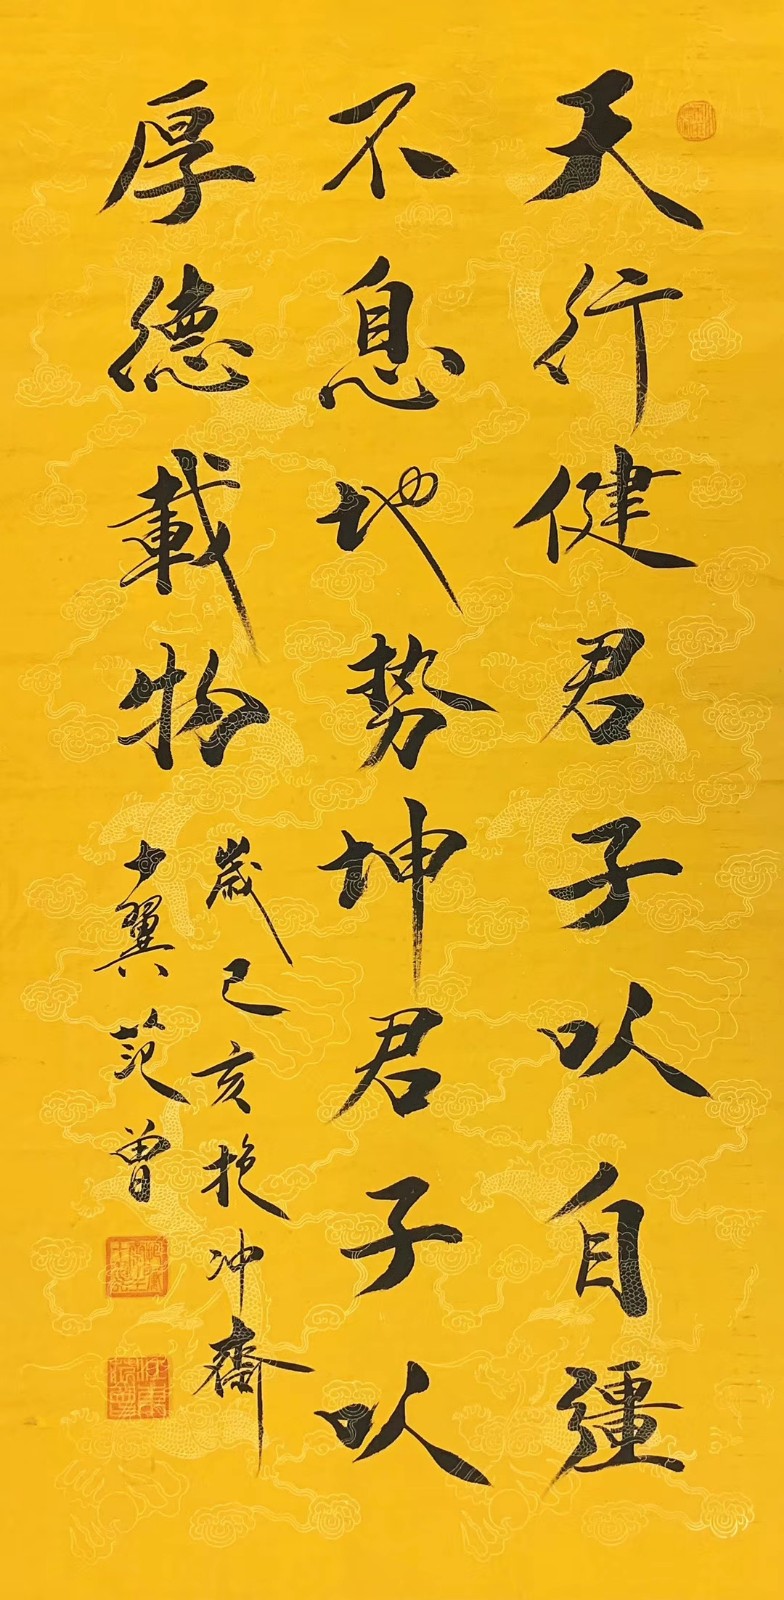 天行健君子以自彊
不息地势坤君子以
厚德載物
歲己亥抱冲齋
十翼范曾